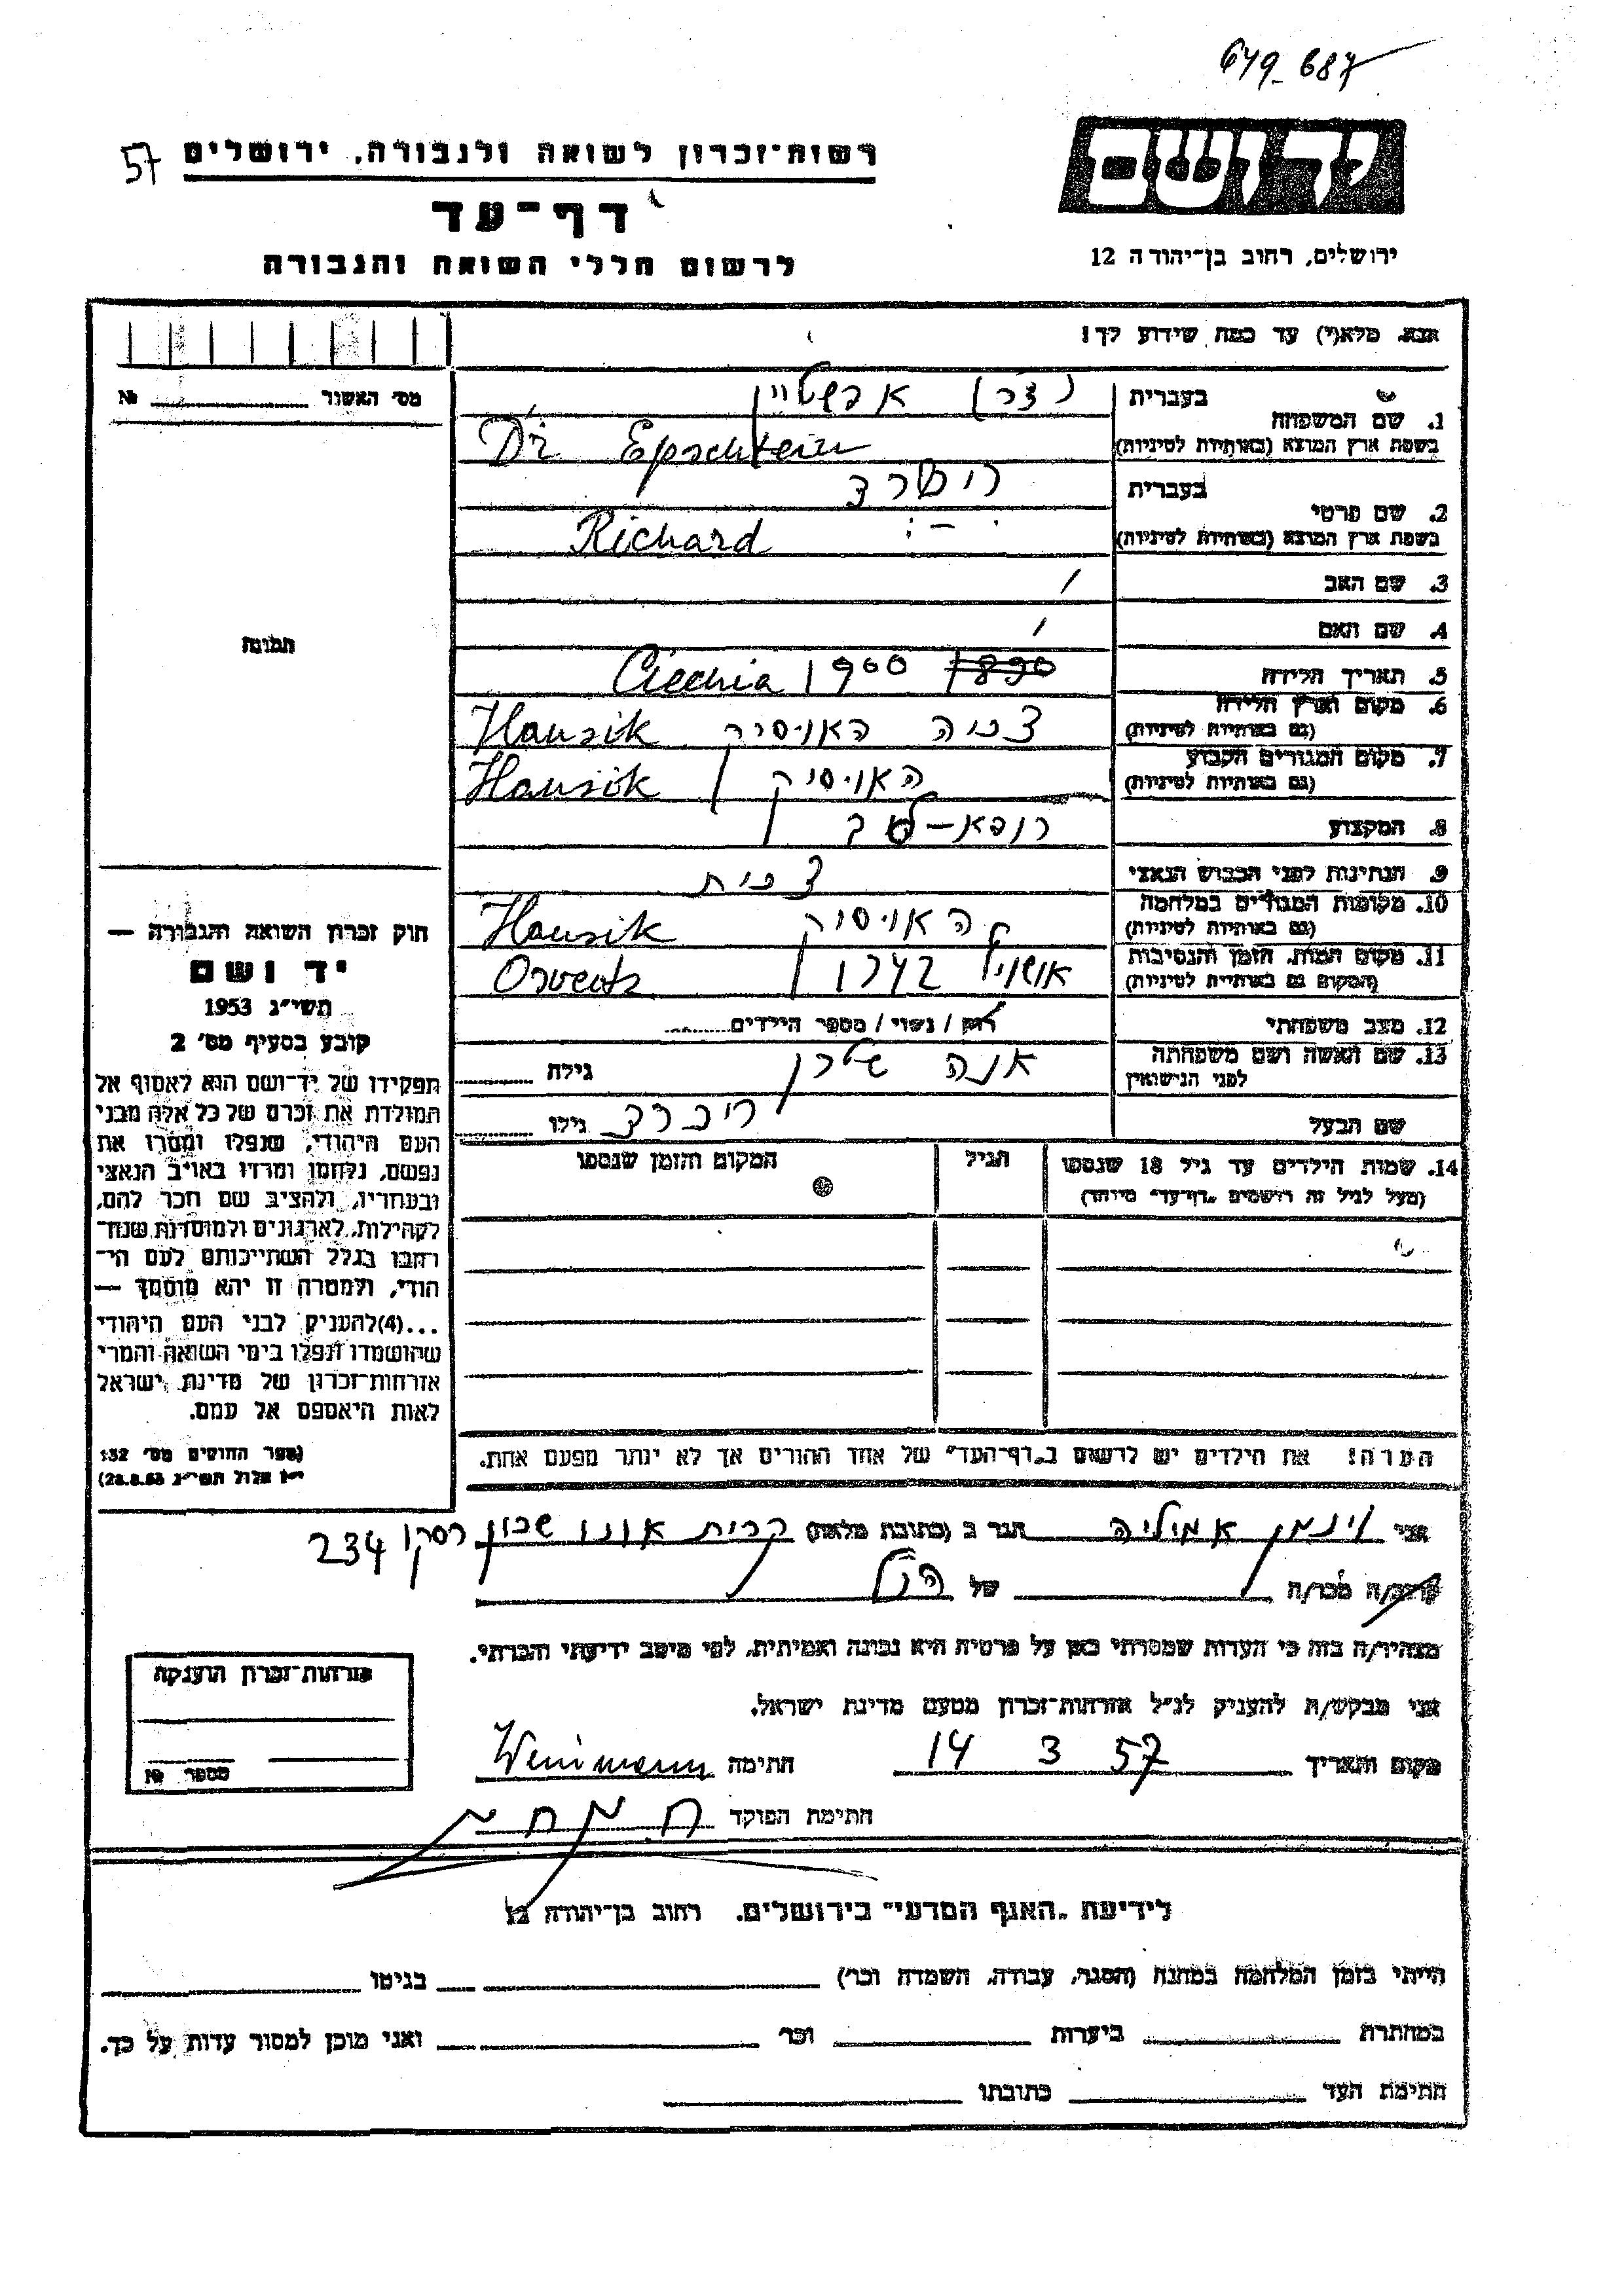 649-687
57
יד ושם
רשות-זכרון לשואה ולגבורה, ירושלים
דף-עד
לרשום חללי השואה והגבורה
ירושלים, רחוב בן-יהודה 12
אנא, מלא(י) עד כמה שידוע לך!
מס׳ האשור № 
1. שם המשפחה
בעברית (דר) אפשטיין
בשפת ארץ המוצא (באותיות לטיניות) Dr Epschtein
2. שם פרטי
בעברית
בשפת ארץ המוצא (באותיות לטיניות) Richard
3. שם האב /
4. שם האם /
5. תאריך הלידה 1890 1900 Ciechia
6. מקום וארץ הלידה
(גם באותיות לטיניות) צכיה האוסיק Hausik
7. מקום המגורים הקבוע
(גם באותיות לטיניות) האוסיק Hausik
8. המקצוע רופא-
9. הנתינות לפני הכבוש הנאצי צכית
10. מקומות המגורים במלחמה
(גם באותיות לטיניות) האוסיק Hausik
11. מקום המות, הזמן והנסיבות
(המקום גם באותיות לטיניות) 1942 Osventz
12. מצב משפחתי רווק / נשוי / מספר הילדים
13. שם האשה ושם משפחתה
לפני הנישואין אנה גילה
שם הבעל ריכרד גילו
14. שמות הילדים עד גיל 18 שנספו
(מעל לגיל זה רושמים „דף-עד״ מיוחד)
הגיל
המקום והזמן שנספו
הערה! את הילדים יש לרשום ב„דף-העד״ של אחד ההורים אך לא יותר מפעם אחת.
תמונה
חוק זכרון השואה והגבורה —
יד ושם
תשי״ג 1953
קובע בסעיף מס׳ 2
תפקידו של יד-ושם הוא לאסוף אל
המולדת את זכרם של כל אלה מבני
העם היהודי, שנפלו ומסרו את
נפשם, נלחמו ומרדו באויב הנאצי
ובעוזריו, ולהציב שם וזכר להם,
לקהילות, לארגונים ולמוסדות שנח-
רבו בגלל השתייכותם לעם הי-
הודי, ולמטרה זו יהא מוסמך —
...(4)להעניק לבני העם היהודי
שהושמדו ונפלו בימי השואה והמרי
אזרחות-זכרון של מדינת ישראל
לאות היאספם אל עמם.
(ספר החוקים מס׳ 132
י״ז אלול תשי״ג 28.8.53)
אני וינמן אמיליה הגר ב (כתובת מלאה) קרית אונו שכון רסקו 234
קרוב/ה מכר/ה של הנ״ל
מצהיר/ה בזה כי העדות שמסרתי כאן על פרטיה היא נכונה ואמיתית, לפי מיטב ידיעתי והכרתי.
אני מבקש/ת להעניק לנ״ל אזרחות-זכרון מטעם מדינת ישראל.
מקום ותאריך 14 3 57 חתימה Weinmann
חתימת הפוקד
אזרחות-זכרון הוענקה
מספר №
לידיעת „האגף המדעי״ בירושלים, רחוב בן-יהודה 12
הייתי בזמן המלחמה במחנה (הסגר, עבודה, השמדה וכו׳) בגיטו
במחתרת ביערות וכו׳ ואני מוכן למסור עדות על כך.
חתימת העד כתובתו